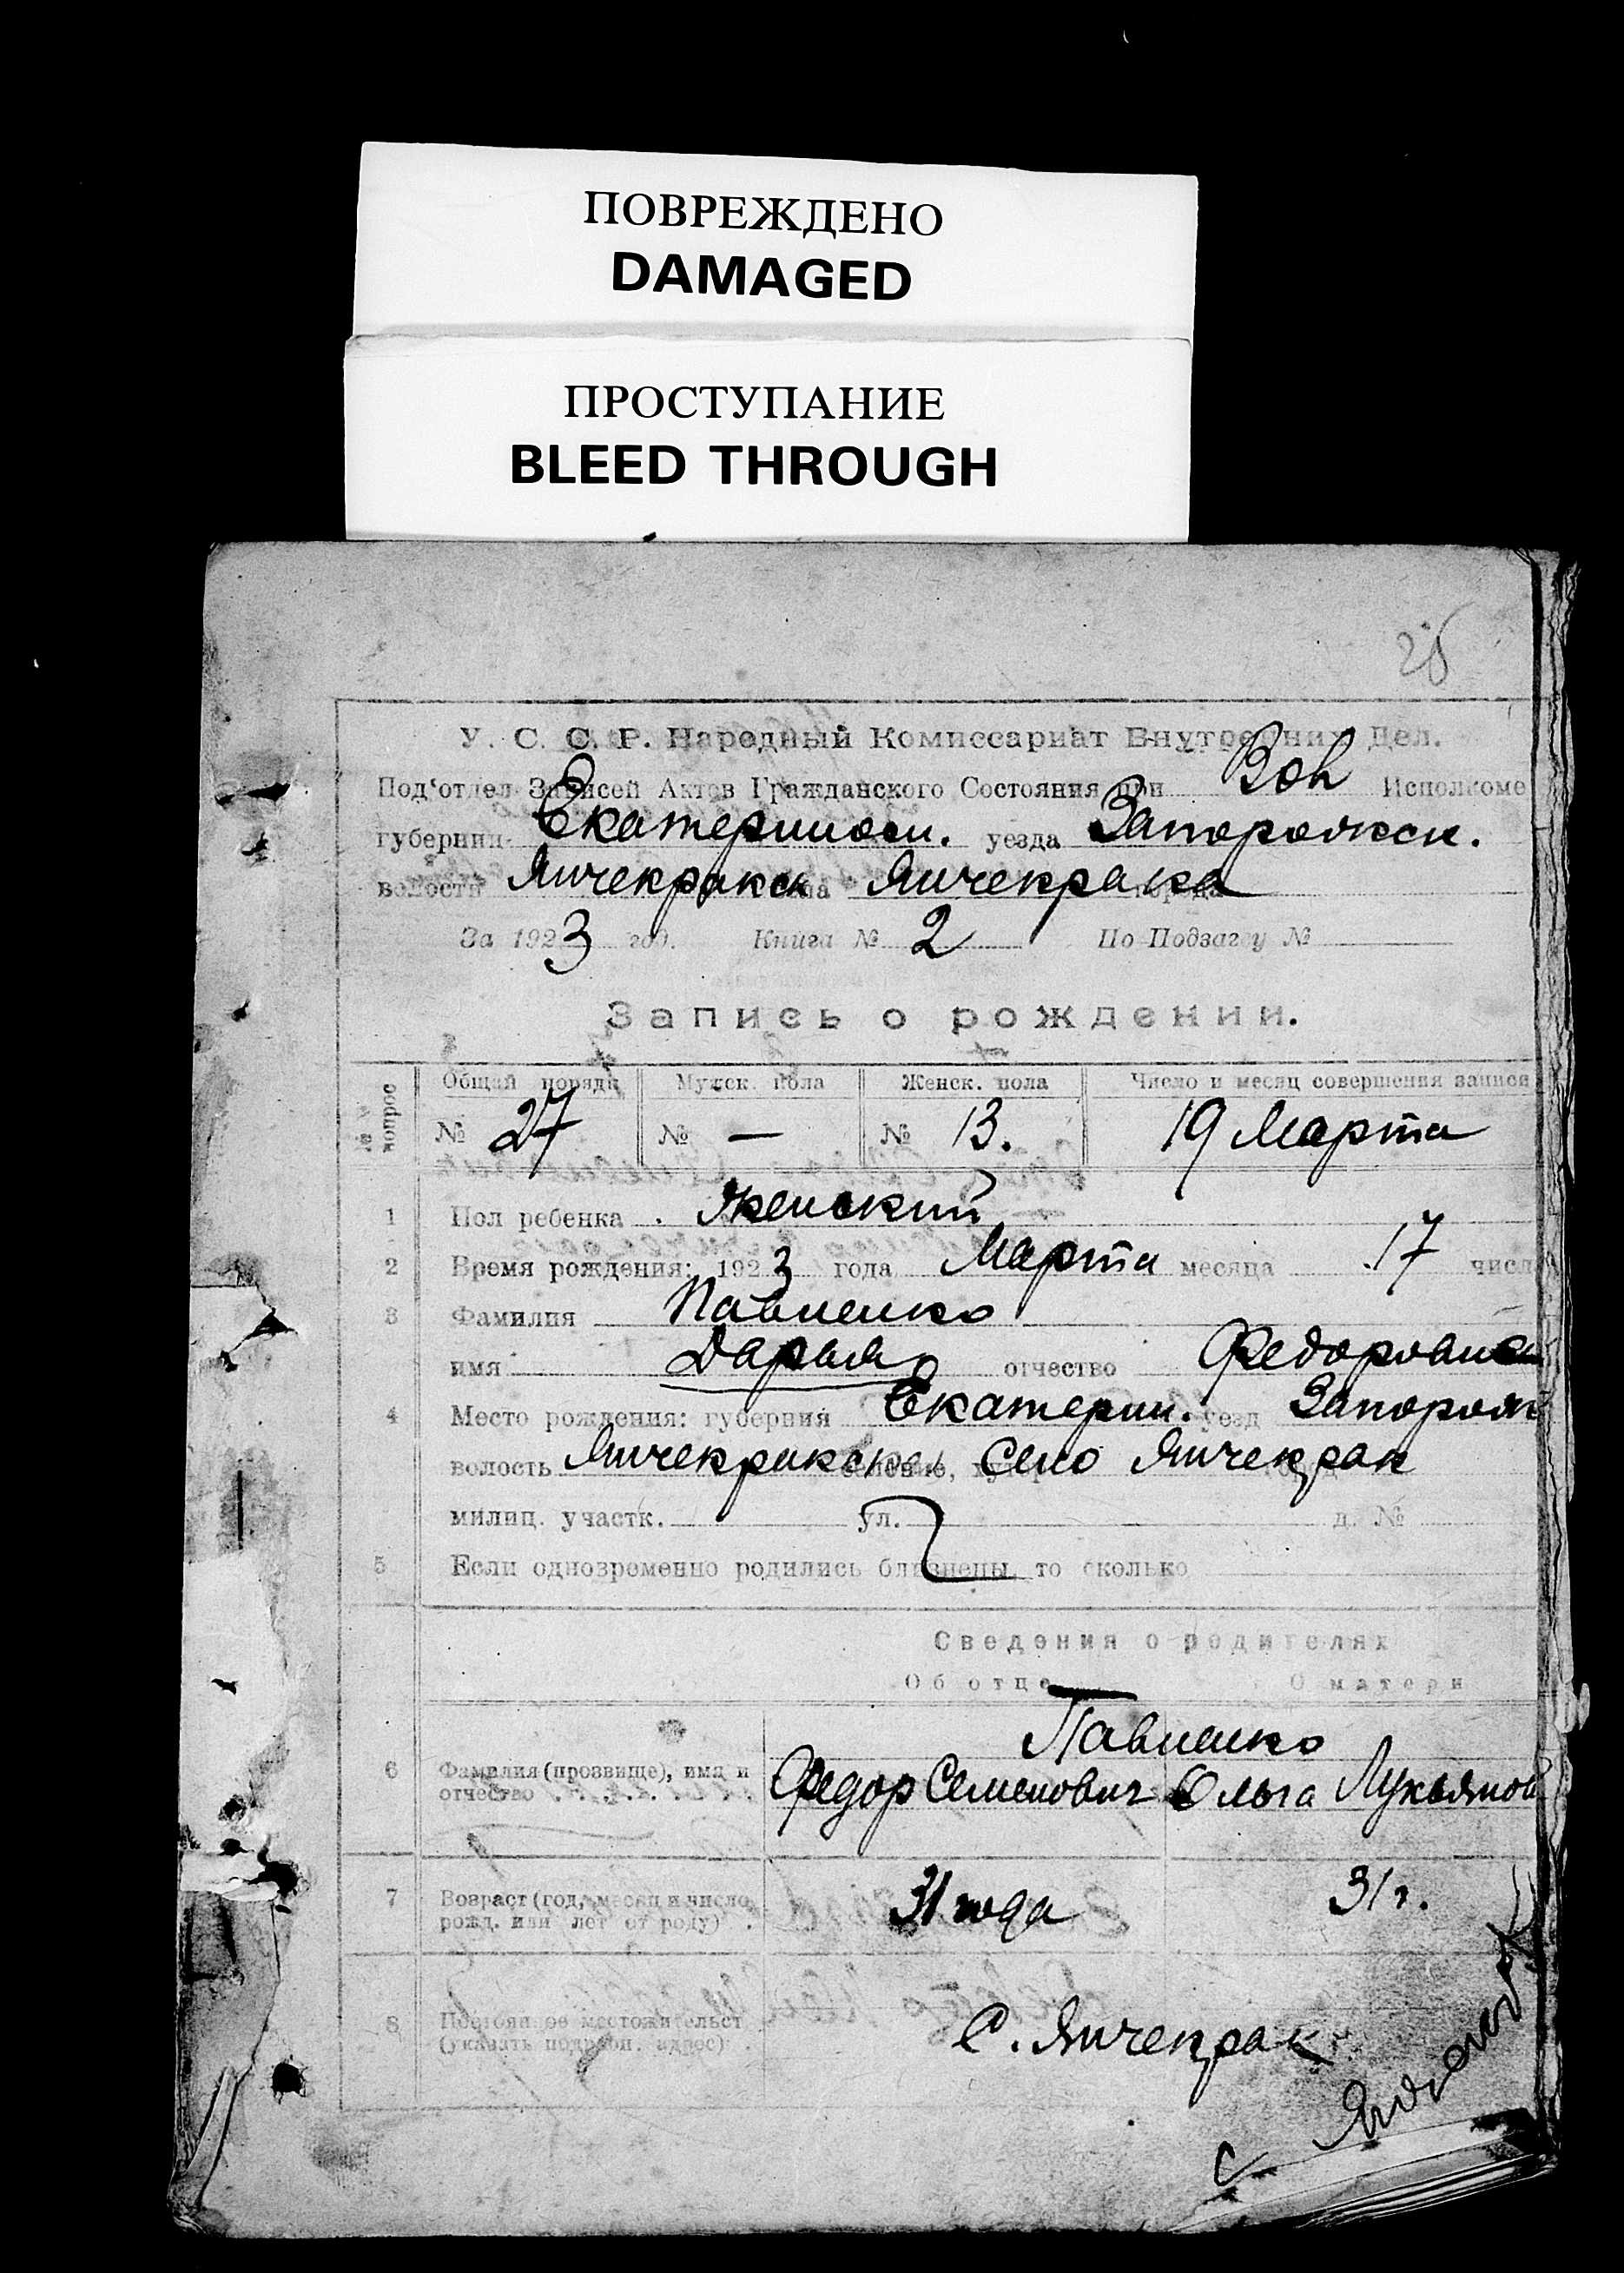 ПОВРЕЖДЕНО
DAMAGED
ПРОСТУПАНИЕ
BLEED THROUGH
25
У. С. С. Р. Народный Комиссариат Внутренних Дел.
Под'отдел Записей Актов Гражданского Состояния при Исполкоме
губернии Екатериносл. уезда Запорожск.
волости Янчекракск села Янчекрака города
За 1923 год. Книга № 2 По Подзагсу №
Запись о рождении.
№№ вопрос Общий порядк Мужск. пола Женск. пола Число и месяц совершения записи
№ 27 № — № 13. 19 Марта
1 Пол ребенка . Женский
2 Время рождения: 1923 года Марта месяца 17 числ
3 Фамилия Павленко
имя Дарья отчество Федоровна
4 Место рождения: губерния Екатерин. уезд Запорож
волость Янчекракская селение, хутор Село Янчекрак город
милиц. участк. ул. д. №
5 Если одновременно родились близнецы, то сколько
Сведения о родителях
Об отце О матери
Павленко
6 Фамилия (прозвище), имя и
отчество Федор Семенович Ольга Лукьяной
7 Возраст (год, месяц и число
рожд. или лет от роду) . 31 года 31 г.
8 Постоянное местожительст
(указать подробн. адрес) . С. Янчекрак
с